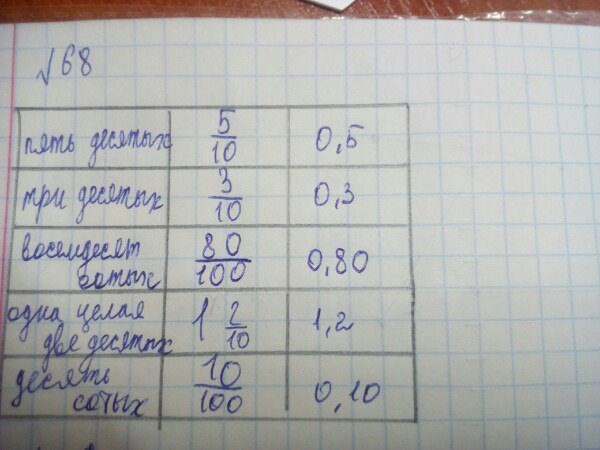 √68
пять десятых 5/10 0,5
три десятых 3/10 0,3
восемдесят
сотых 80/100 0,80
одна целая
две десятых 1 2/10 1,2
десять
сотых 10/100 0,10